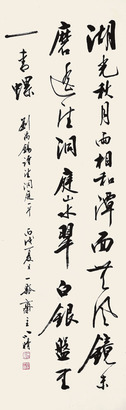 湖光秋月两相和潭面无风镜未
磨遥望洞庭山水翠白银盘里
一青螺
刘禹锡诗望洞庭一首
丙戌夏